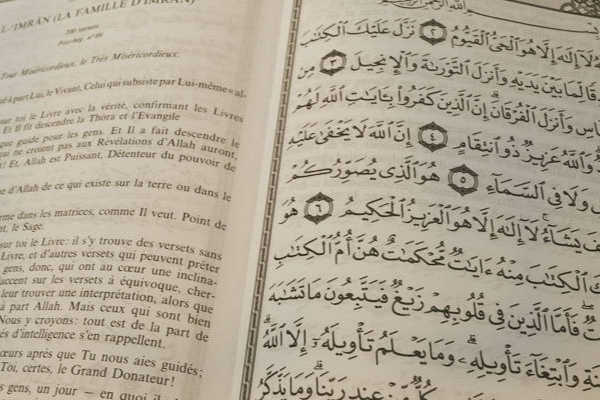 L-'IMRAN (LA FAMILLE D'IMRAN)
200 versets
Post-hég. n° 89
Tout Miséricordieux, le Très Miséricordieux.
à part Lui, le Vivant, Celui qui subsiste par Lui-même « al-
sur toi le Livre avec la vérité, confirmant les Livres
Et Il fit descendre la Thora et l'Evangile
que guide pour les gens. Et Il a fait descendre le
qui ne croient pas aux Révélations d'Allah auront,
! Et, Allah est Puissant, Détenteur du pouvoir de
d'Allah de ce qui existe sur la terre ou dans le
dans les matrices, comme Il veut. Point de
le Sage.
sur toi le Livre : il s'y trouve des versets sans
Livre, et d'autres versets qui peuvent prêter
gens, donc, qui ont au cœur une inclina-
l'accent sur les versets à équivoque, cher-
leur trouver une interprétation, alors que
à part Allah. Mais ceux qui sont bien
Nous y croyons : tout est de la part de
d'intelligence s'en rappellent.
cœurs après que Tu nous aies guidés ;
Toi, certes, le Grand Donateur !
gens, un jour — en quoi il
ٱللَّهُ لَآ إِلَٰهَ إِلَّا هُوَ ٱلْحَىُّ ٱلْقَيُّومُ ٢ نَزَّلَ عَلَيْكَ ٱلْكِتَٰبَ
لِّمَا بَيْنَ يَدَيْهِ وَأَنزَلَ ٱلتَّوْرَىٰةَ وَٱلْإِنجِيلَ ٣ مِن
وَأَنزَلَ ٱلْفُرْقَانَ إِنَّ ٱلَّذِينَ كَفَرُوا۟ بِـَٔايَٰتِ ٱللَّهِ لَهُمْ
وَٱللَّهُ عَزِيزٌ ذُو ٱنتِقَامٍ ٤ إِنَّ ٱللَّهَ لَا يَخْفَىٰ عَلَيْهِ
وَلَا فِى ٱلسَّمَآءِ ٥ هُوَ ٱلَّذِى يُصَوِّرُكُمْ
يَشَآءُ لَآ إِلَٰهَ إِلَّا هُوَ ٱلْعَزِيزُ ٱلْحَكِيمُ ٦ هُوَ
ٱلْكِتَٰبَ مِنْهُ ءَايَٰتٌ مُّحْكَمَٰتٌ هُنَّ أُمُّ ٱلْكِتَٰبِ
فَأَمَّا ٱلَّذِينَ فِى قُلُوبِهِمْ زَيْغٌ فَيَتَّبِعُونَ مَا تَشَٰبَهَ
وَٱبْتِغَآءَ تَأْوِيلِهِۦ وَمَا يَعْلَمُ تَأْوِيلَهُۥٓ إِلَّا ٱللَّهُ
كُلٌّ مِّنْ عِندِ رَبِّنَا وَمَا يَذَّكَّرُ